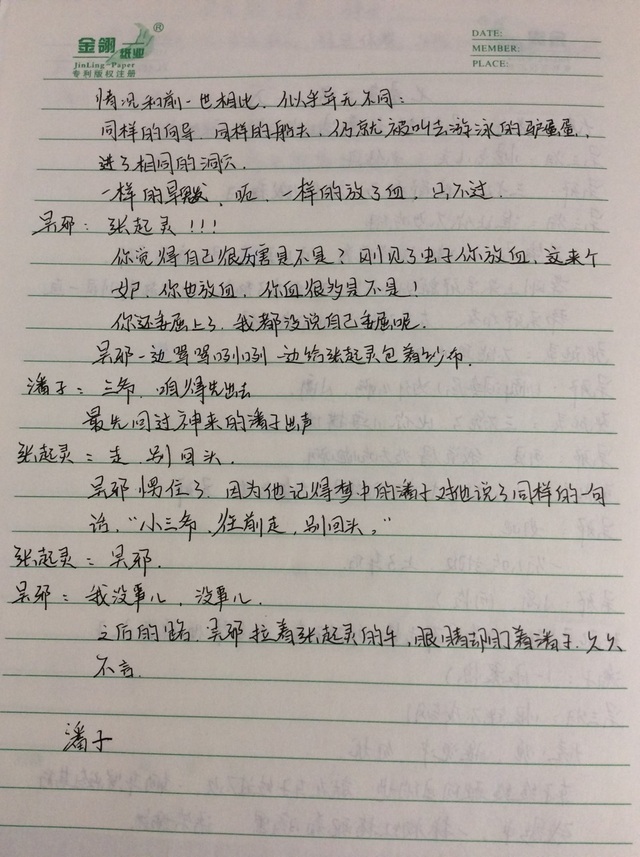 金翎纸业®
JinLing-Paper
专利版权注册
DATE:
MEMBER:
PLACE:
情况和前一世相比，似乎并无不同：
同样的向导，同样的船夫，仍就被叫去游泳的驴蛋蛋，
进了相同的洞穴.
一样的旱魃，呃，一样的放了血，只不过.
吴邪：张起灵！！！
你觉得自己很厉害是不是？刚见了虫子你放血，这来个
你也放血，你血很多是不是！
你还委屈上了，我都没说自己委屈呢.
吴邪一边骂骂咧咧一边给张起灵包着纱布.
潘子：三爷，咱得先出去
最先回过神来的潘子出声
张起灵：走，别回头.
吴邪愣住了，因为他记得梦中的潘子对他说了同样的一句
话，“小三爷，往前走，别回头。”
张起灵：吴邪.
吴邪：我没事儿，没事儿.
之后的路，吴邪拉着张起灵的手，眼睛却盯着潘子，久久
不言.
潘子